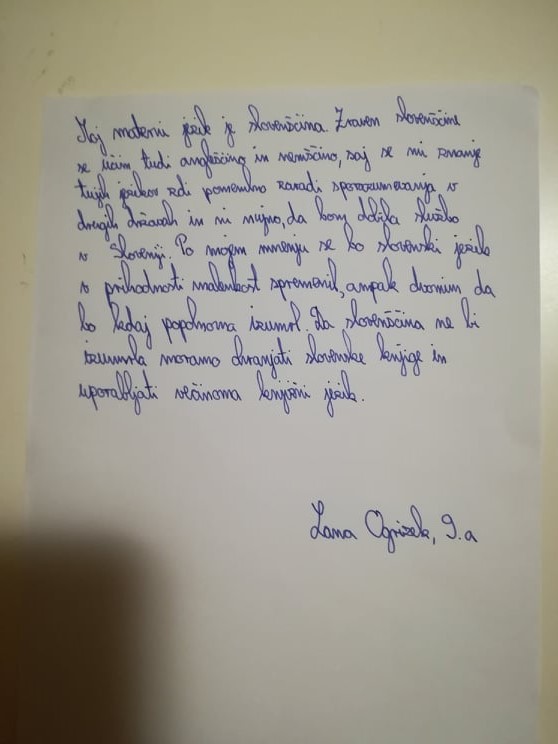 Moj materni jezik je slovenščina. Zraven slovenščine
se učim tudi angleščino in nemščino, saj se mi znanje
tujih jezikov zdi pomembno zaradi sporazumevanja v
drugih državah in ni nujno, da bom dobila službo
v Sloveniji. Po mojem mnenju se bo slovenski jezik
v prihodnosti malenkost spremenil, ampak dvomim da
bo kdaj popolnoma izumrl. Da slovenščina ne bi
izumrla moramo ohranjati slovenske knjige in
uporabljati večinoma knjižni jezik.
Lana Ogrizek, 9.a